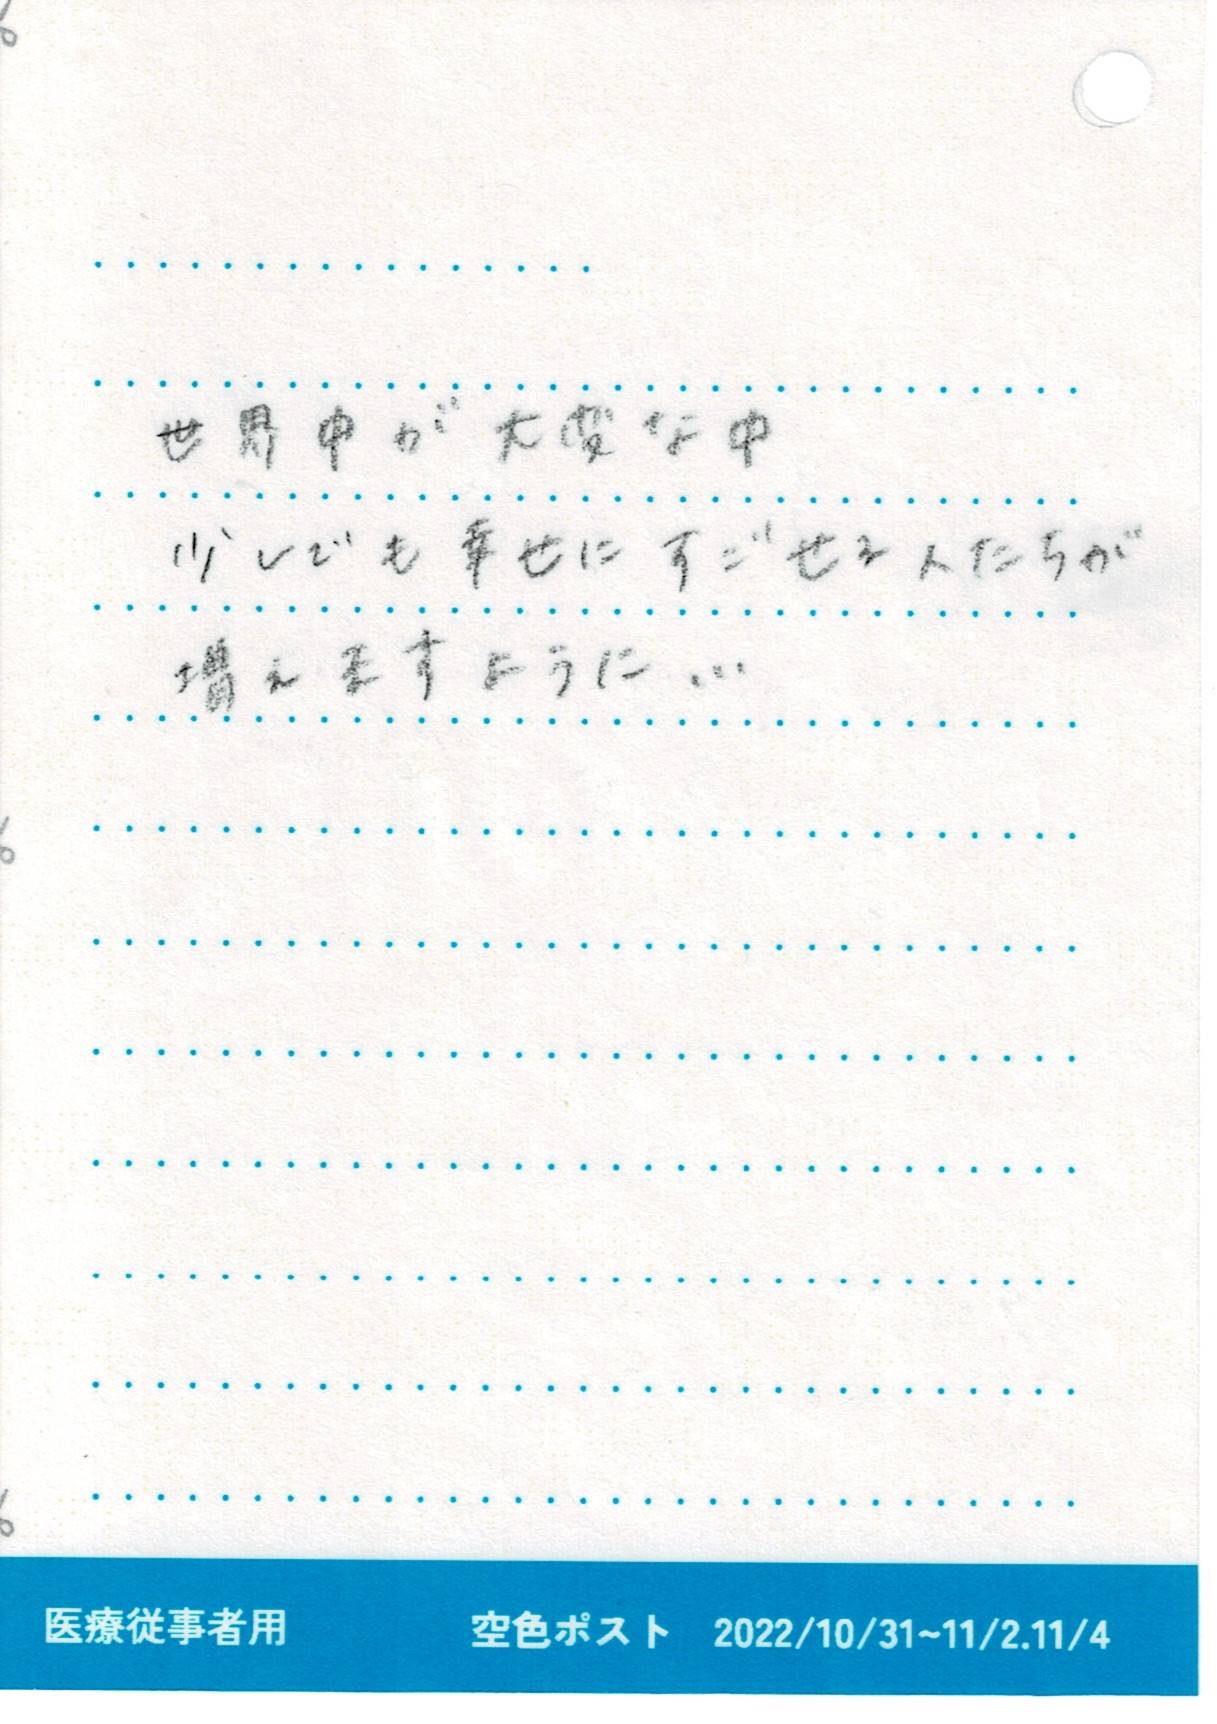 世界中が大変な中
少しでも幸せにすごせる人たちが
増えますように...
医療従事者用 空色ポスト 2022/10/31~11/2.11/4